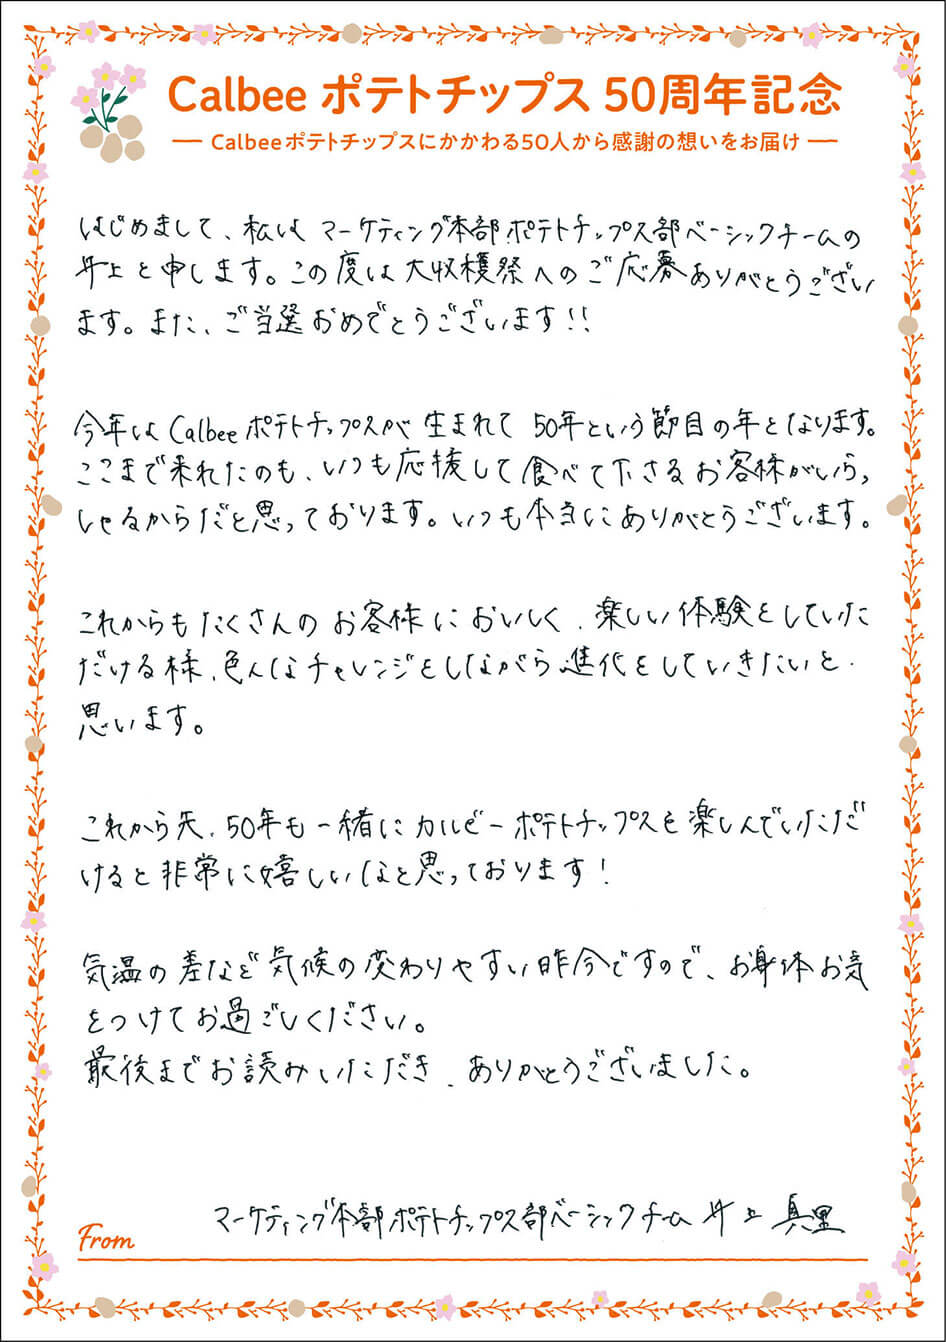 Calbee ポテトチップス 50周年記念
Calbeeポテトチップスにかかわる50人から感謝の想いをお届け
はじめまして、私は マーケティング本部ポテトチップス部ベーシックチームの
井上と申します。この度は大収穫祭へのご応募ありがとうござい
ます。また、ご当選おめでとうございます!!
今年は Calbee ポテトチップスが 生まれて 50年という節目の年となります。
ここまで来れたのも、いつも応援して食べて下さるお客様がいらっ
しゃるからだと思っております。いつも本当にありがとうございます。
これからもたくさんの お客様に おいしく、楽しい体験をしていた
だける様、色んなチャレンジをしながら進化をしていきたいと
思います。
これから先、50年も一緒に カルビーポテトチップスを楽しんでいただ
けると非常に嬉しいなと思っております!
気温の差など気候の変わりやすい昨今ですので、お身体お気
をつけてお過ごしください。
最後までお読みいただき、ありがとうございました。
From マーケティング本部ポテトチップス部ベーシックチーム 井上 真里